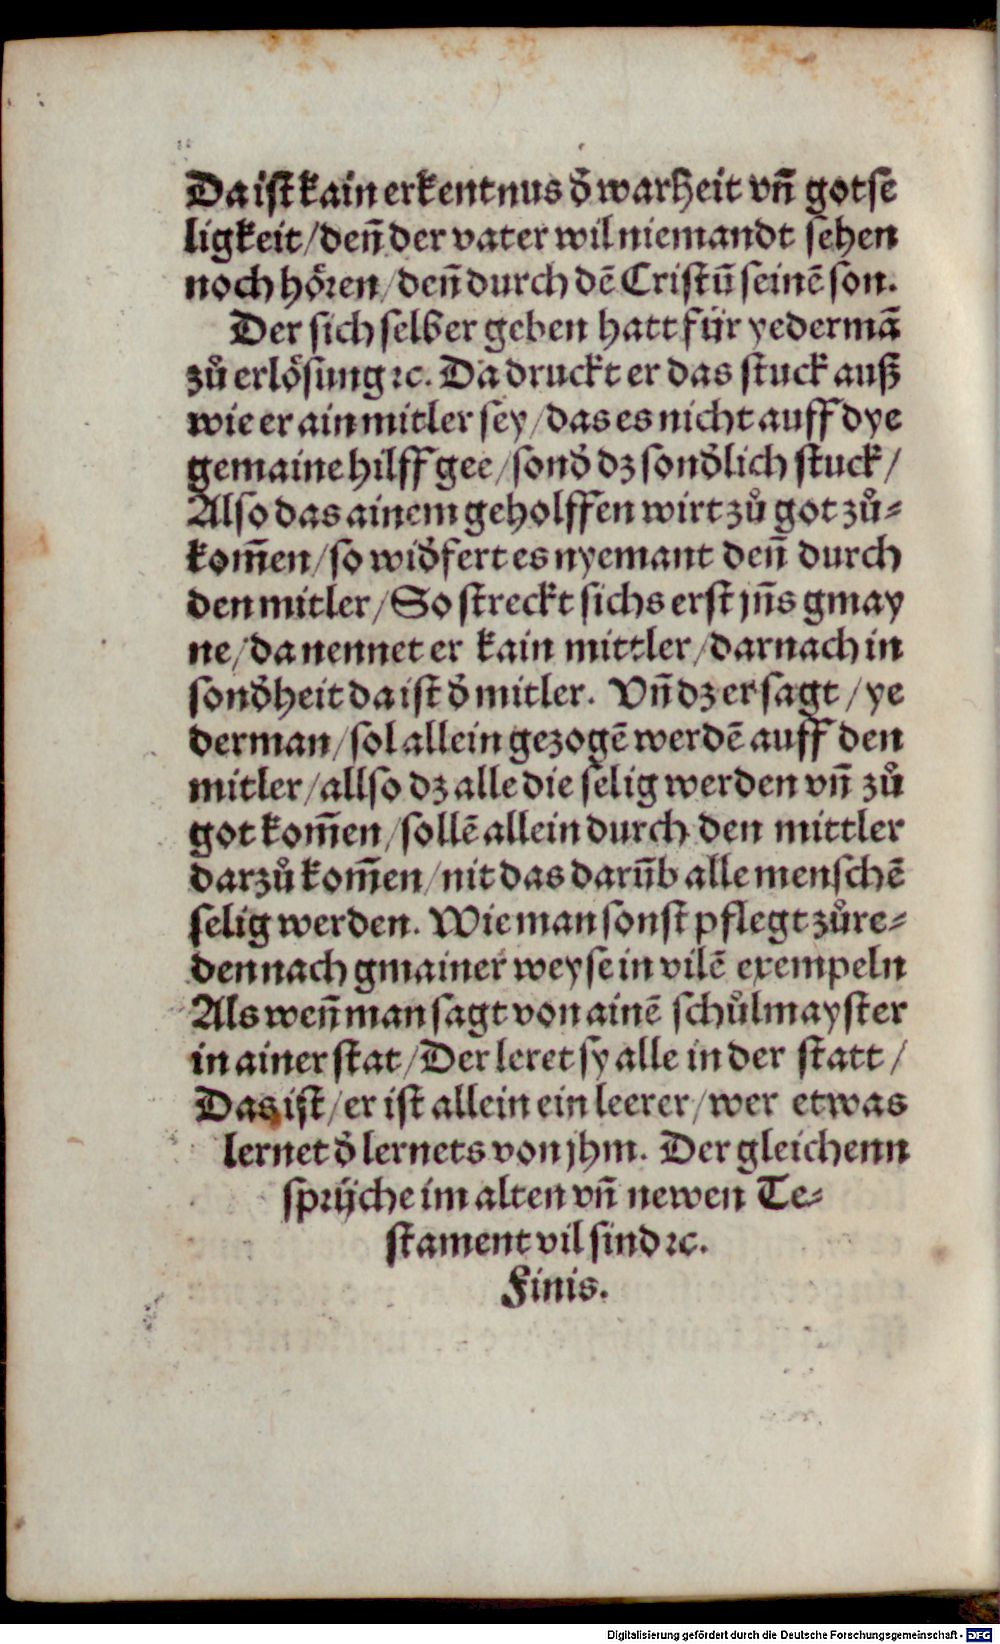 Da ist kain erkentnus d̕ warheit vn̄ gotse
ligkeit/den̄ der vater wil niemandt sehen
noch hören/den̄ durch dē Cristū seinē son.
Der sich selber geben hatt für yedermā
zů erlösung ⁊c. Da druckt er das stuck auß
wie er ain mitler sey/das es nicht auff dye
gemaine hilff gee/sond̕ dz sond̕lich stuck/
Also das ainem geholffen wirt zů got zů⸗
kom̄en/so wid̕fert es nyemant den̄ durch
den mitler/So streckt sichs erst jn̄s gmay
ne/da nennet er kain mittler/darnach in
sond̕heit da ist d̕ mitler. Vn̄ dz er sagt/ye
derman/sol allein gezogē werdē auff den
mitler/allso dz alle die selig werden vn̄ zů
got kom̄en/sollē allein durch den mittler
darzů kom̄en/nit das darūb alle menschē
selig werden. Wie man sonst pflegt zů re⸗
den nach gmainer weyse in vilē exempeln
Als wen̄ man sagt von ainē schůlmayster
in ainer stat/Der leret sy alle in der statt/
Das ist/er ist allein ein leerer/wer etwas
lernet d̕ lernets von jhm. Der gleichenn
sprÿche im alten vn̄ newen Te⸗
stament vil sind ⁊c.
Finis.
Digitalisierung gefördert durch die Deutsche Forschungsgemeinschaft - DFG